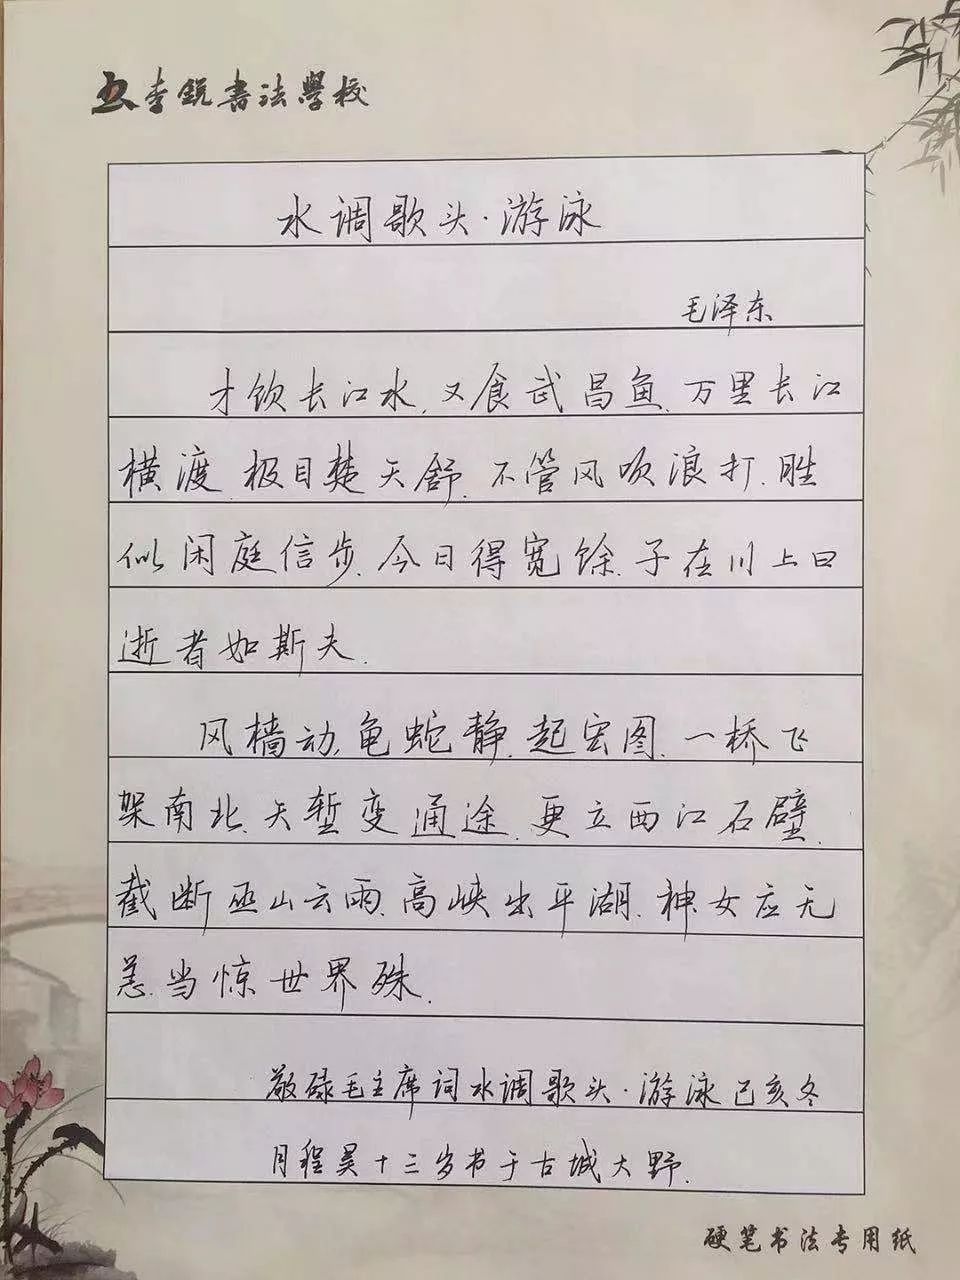 李锐書法學校
水调歌头·游泳
毛泽东
才饮长江水,又食武昌鱼.万里长江
横渡.极目楚天舒.不管风吹浪打.胜
似闲庭信步.今日得宽馀.子在川上曰
逝者如斯夫.
风樯动,龟蛇静.起宏图.一桥飞
架南北.天堑变通途.更立西江石壁.
截断巫山云雨.高峡出平湖.神女应无
恙.当惊世界殊.
敬録毛主席词水调歌头·游泳己亥冬
月程昊十三岁书于古城大野.
硬笔书法专用纸